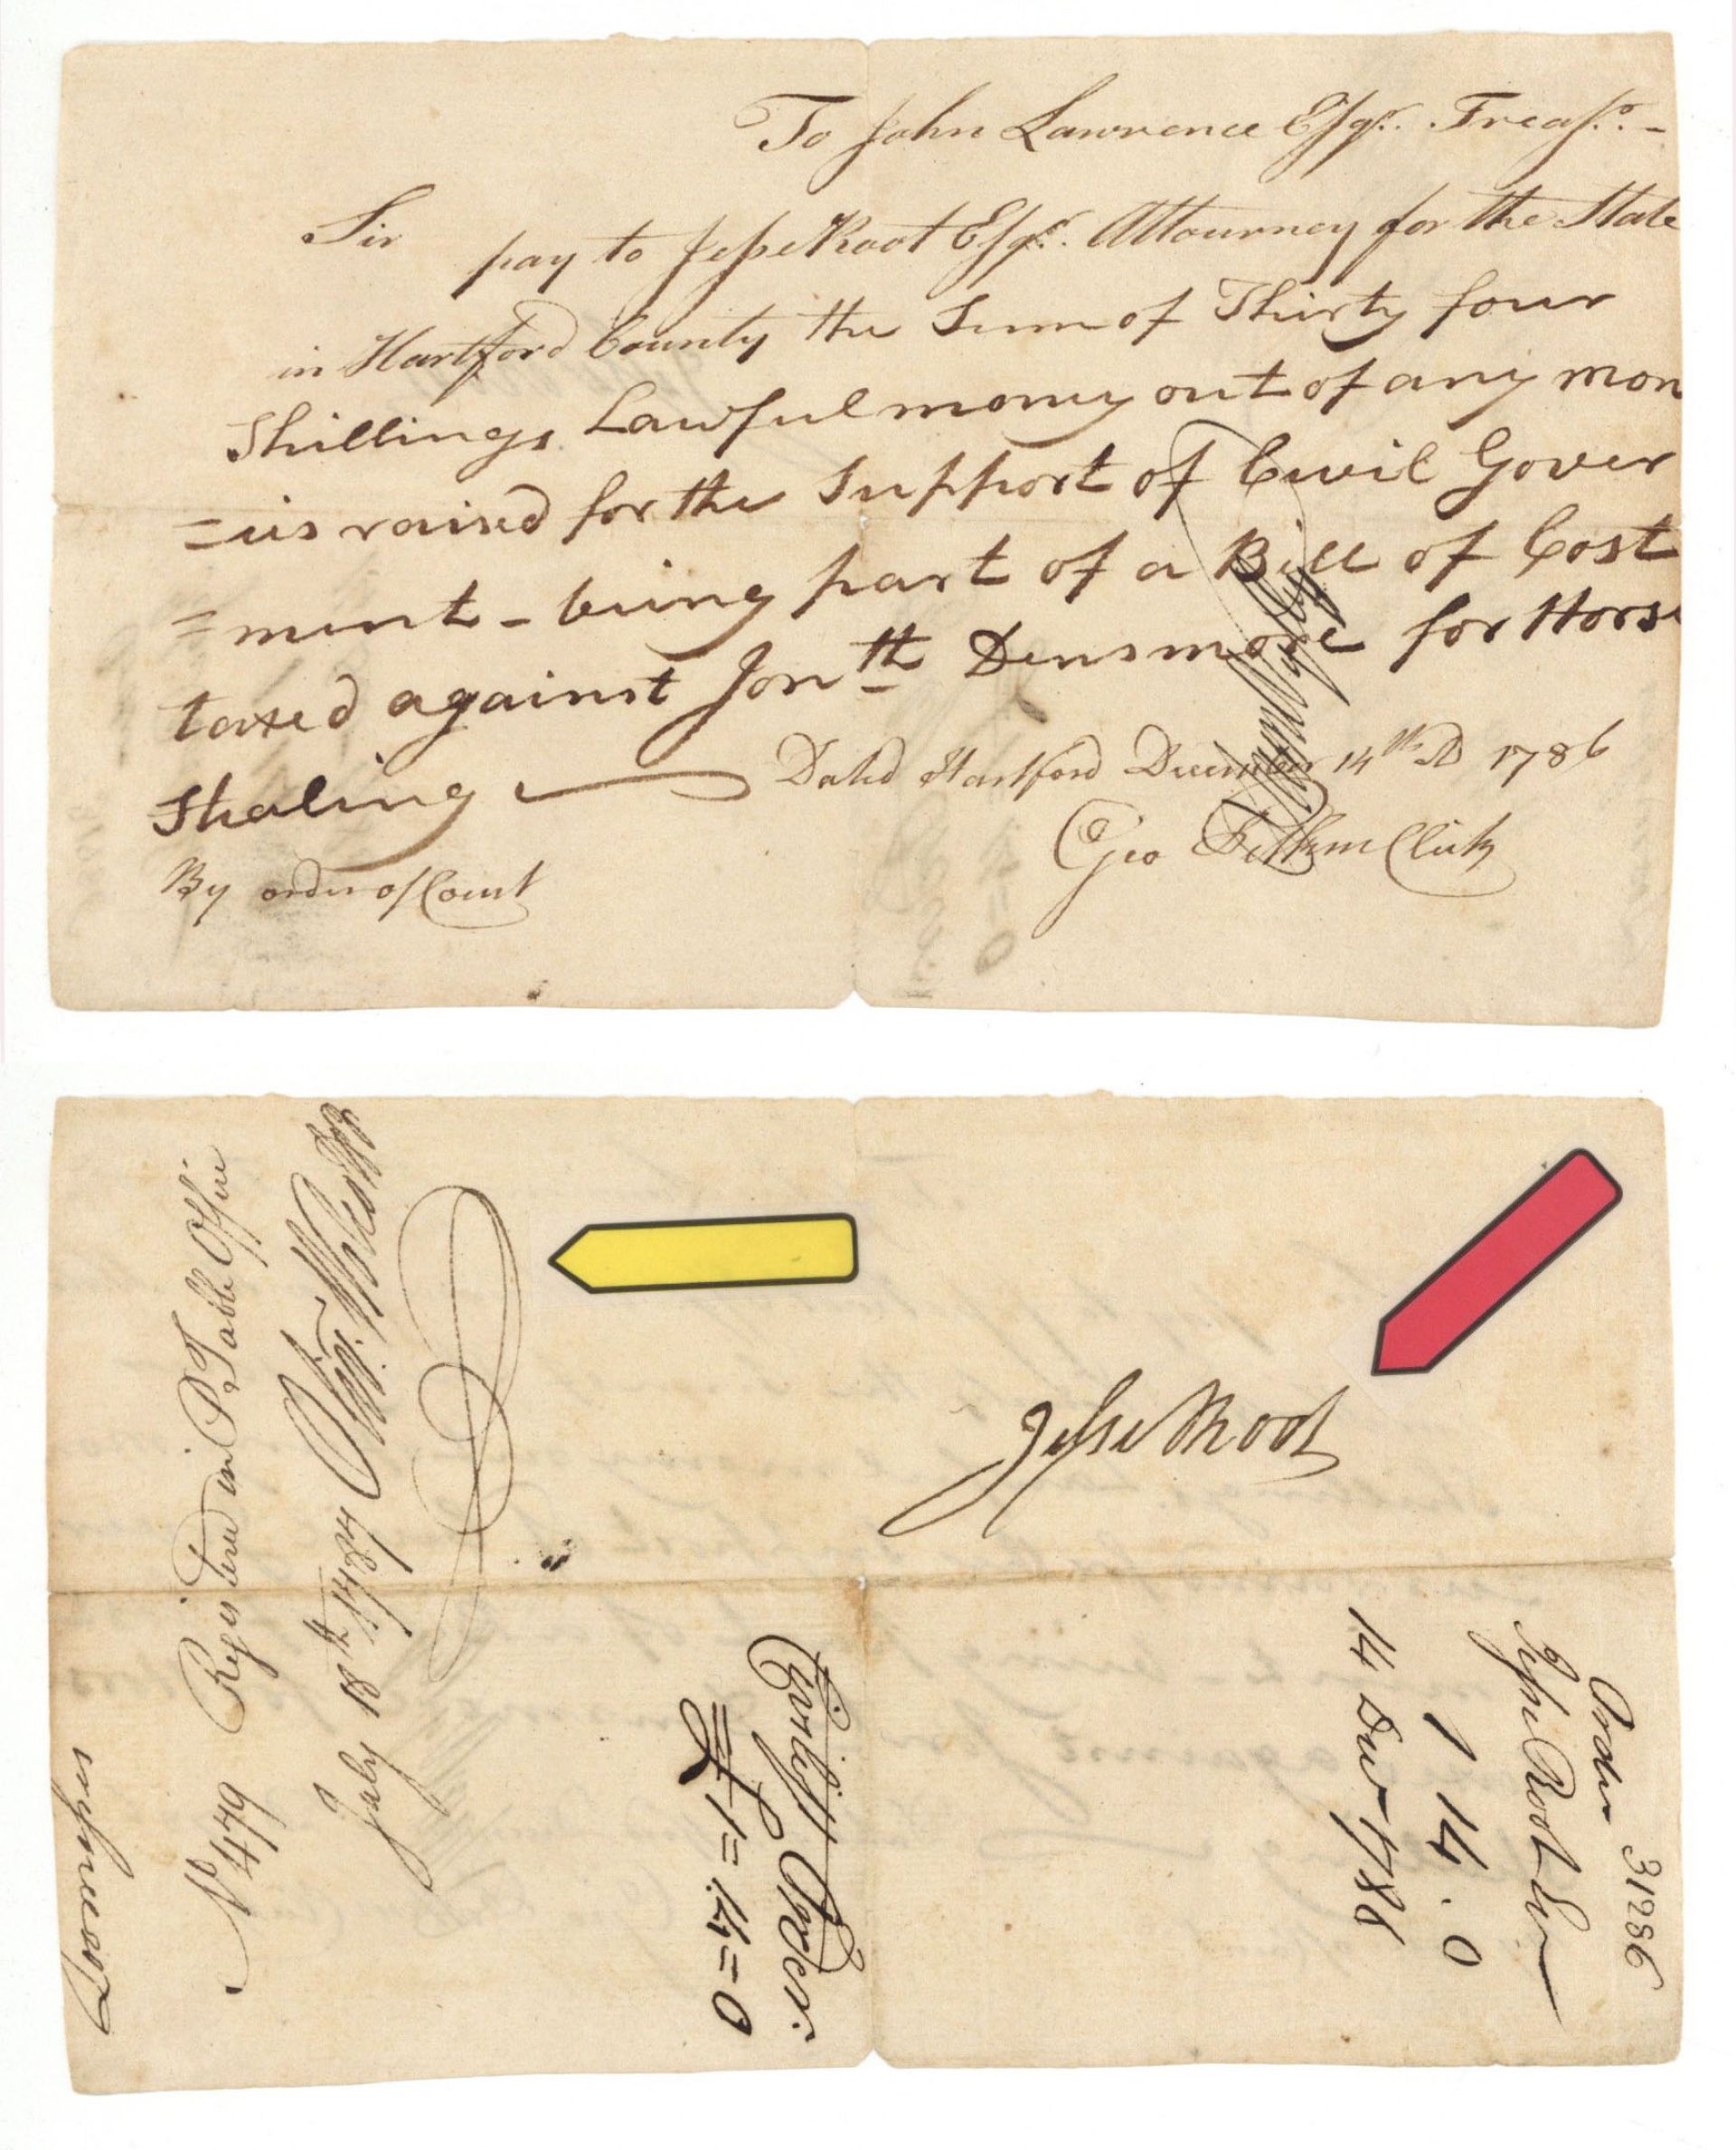 To John Lawrence Esqr. Treasr. -
Sir pay to Jesse Root Esqr. Attourney for the State
in Hartford County the Sum of Thirty four
Shillings Lawful money out of any mon
=ies raised for the Support of Civil Gover
=ment - being part of a Bill of Cost
taxed against Jonth Densmore for Horse
Stealing
Dated Hartford December 14th AD 1786
Geo Clerk
By order of Court
No 479 Registered in P. Table Office
July 18th 1787 Oliv. Wolcott
Jesse Root
Civil List Order.
£1=14=0
Order
Jesse Root
1 14. 0
14 Decr 1786
31286